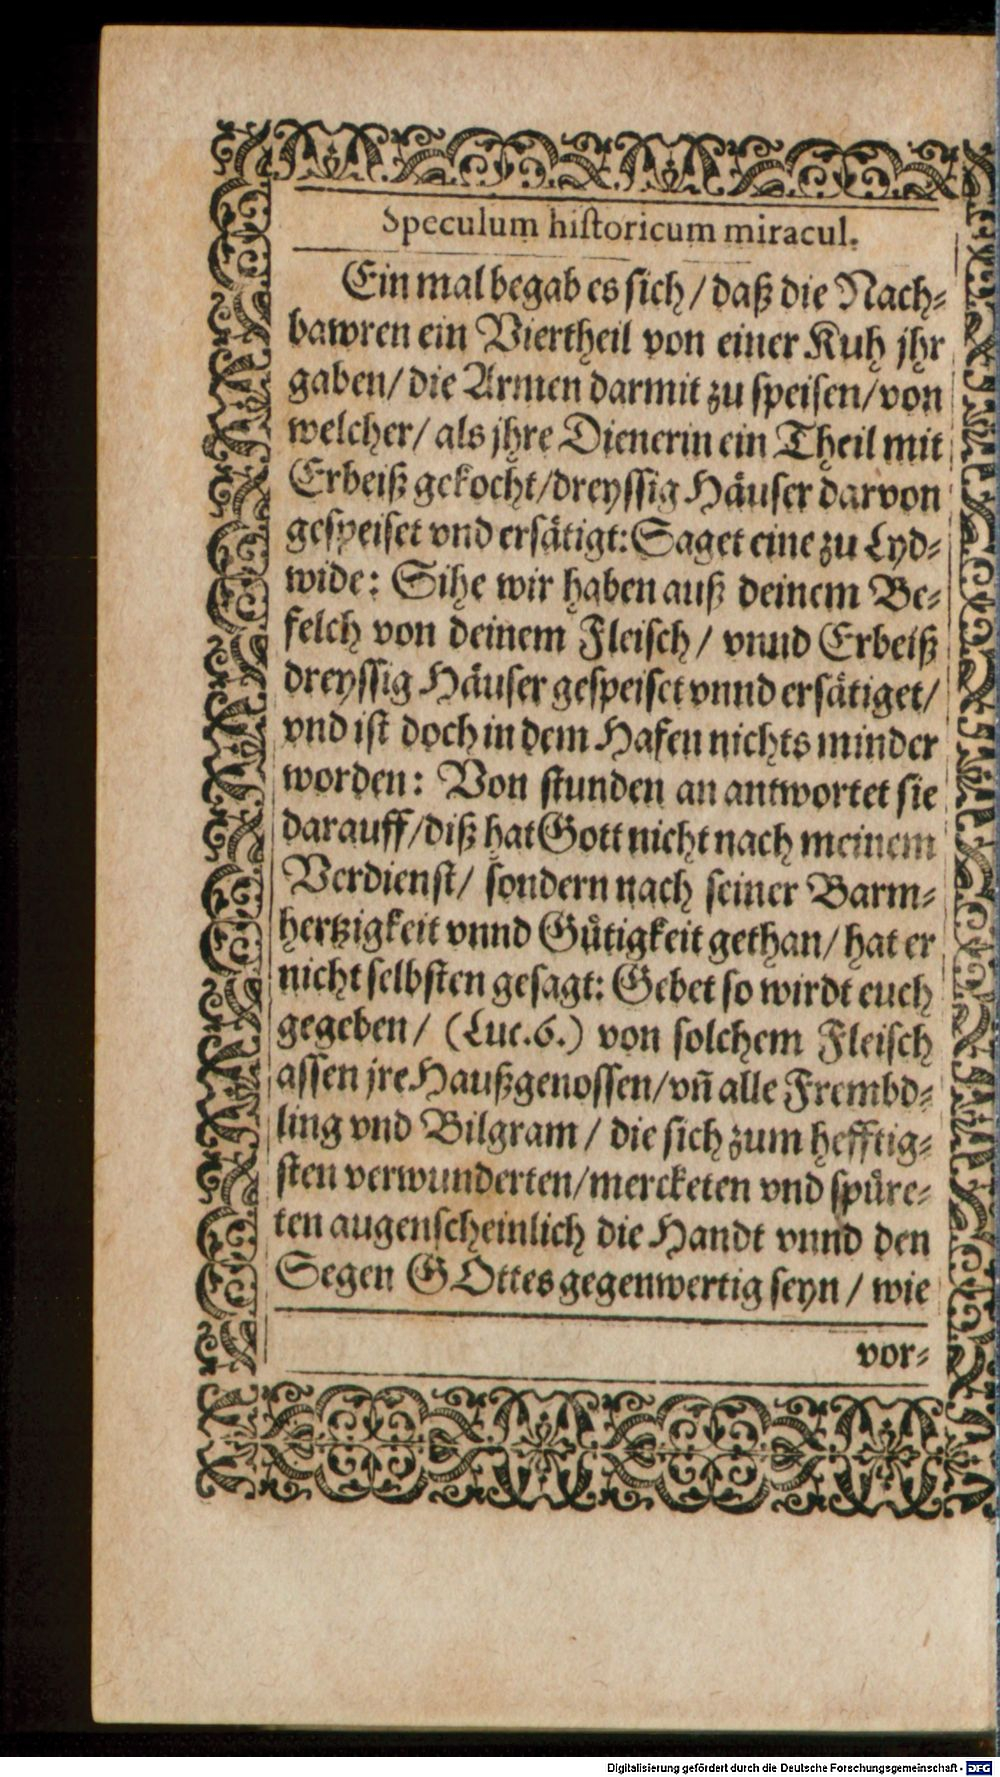 Speculum historicum miracul.
Ein mal begab es sich / daß die Nach-
bawren ein Viertheil von einer Kuh jhr
gaben / die Armen darmit zu speisen / von
welcher / als jhre Dienerin ein Theil mit
Erbeiß gekocht / dreyssig Häuser darvon
gespeiset vnd ersätigt: Saget eine zu Lyd-
wide: Sihe wir haben auß deinem Be-
felch von deinem Fleisch / vnnd Erbeiß
dreyssig Häuser gespeiset vnnd ersätiget /
vnd ist doch in dem Hafen nichts minder
worden: Von stunden an antwortet sie
darauff / diß hat Gott nicht nach meinem
Verdienst / sondern nach seiner Barm-
hertzigkeit vnnd Gůtigkeit gethan / hat er
nicht selbsten gesagt: Gebet so wirdt euch
gegeben / (Luc. 6.) von solchem Fleisch
assen jre Haußgenossen / vñ alle Frembd-
ling vnd Bilgram / die sich zum hefftig-
sten verwunderten / mercketen vnd spůre-
ten augenscheinlich die Handt vnnd den
Segen GOttes gegenwertig seyn / wie
vor-
Digitalisierung gefördert durch die Deutsche Forschungsgemeinschaft - DFG